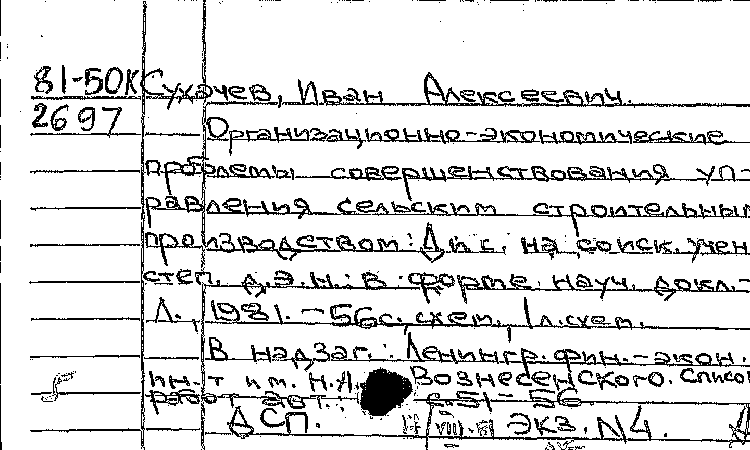 81-50К Сухачев, Иван Алексеевич.
2697 Организационно-экономические
проблемы совершенствования уп-
равления сельским строительным
производством: Дис. на соиск. учен.
степ. д.э.н.: В форме науч. докл.-
Л., 1981. - 56с. схем., 1л. схем.
В надзаг.: Ленингр. фин.-экон.
ин-т им. Н.А. Вознесенского. Список
работ авт.: с.51-56.
ДСП. Экз. N4.